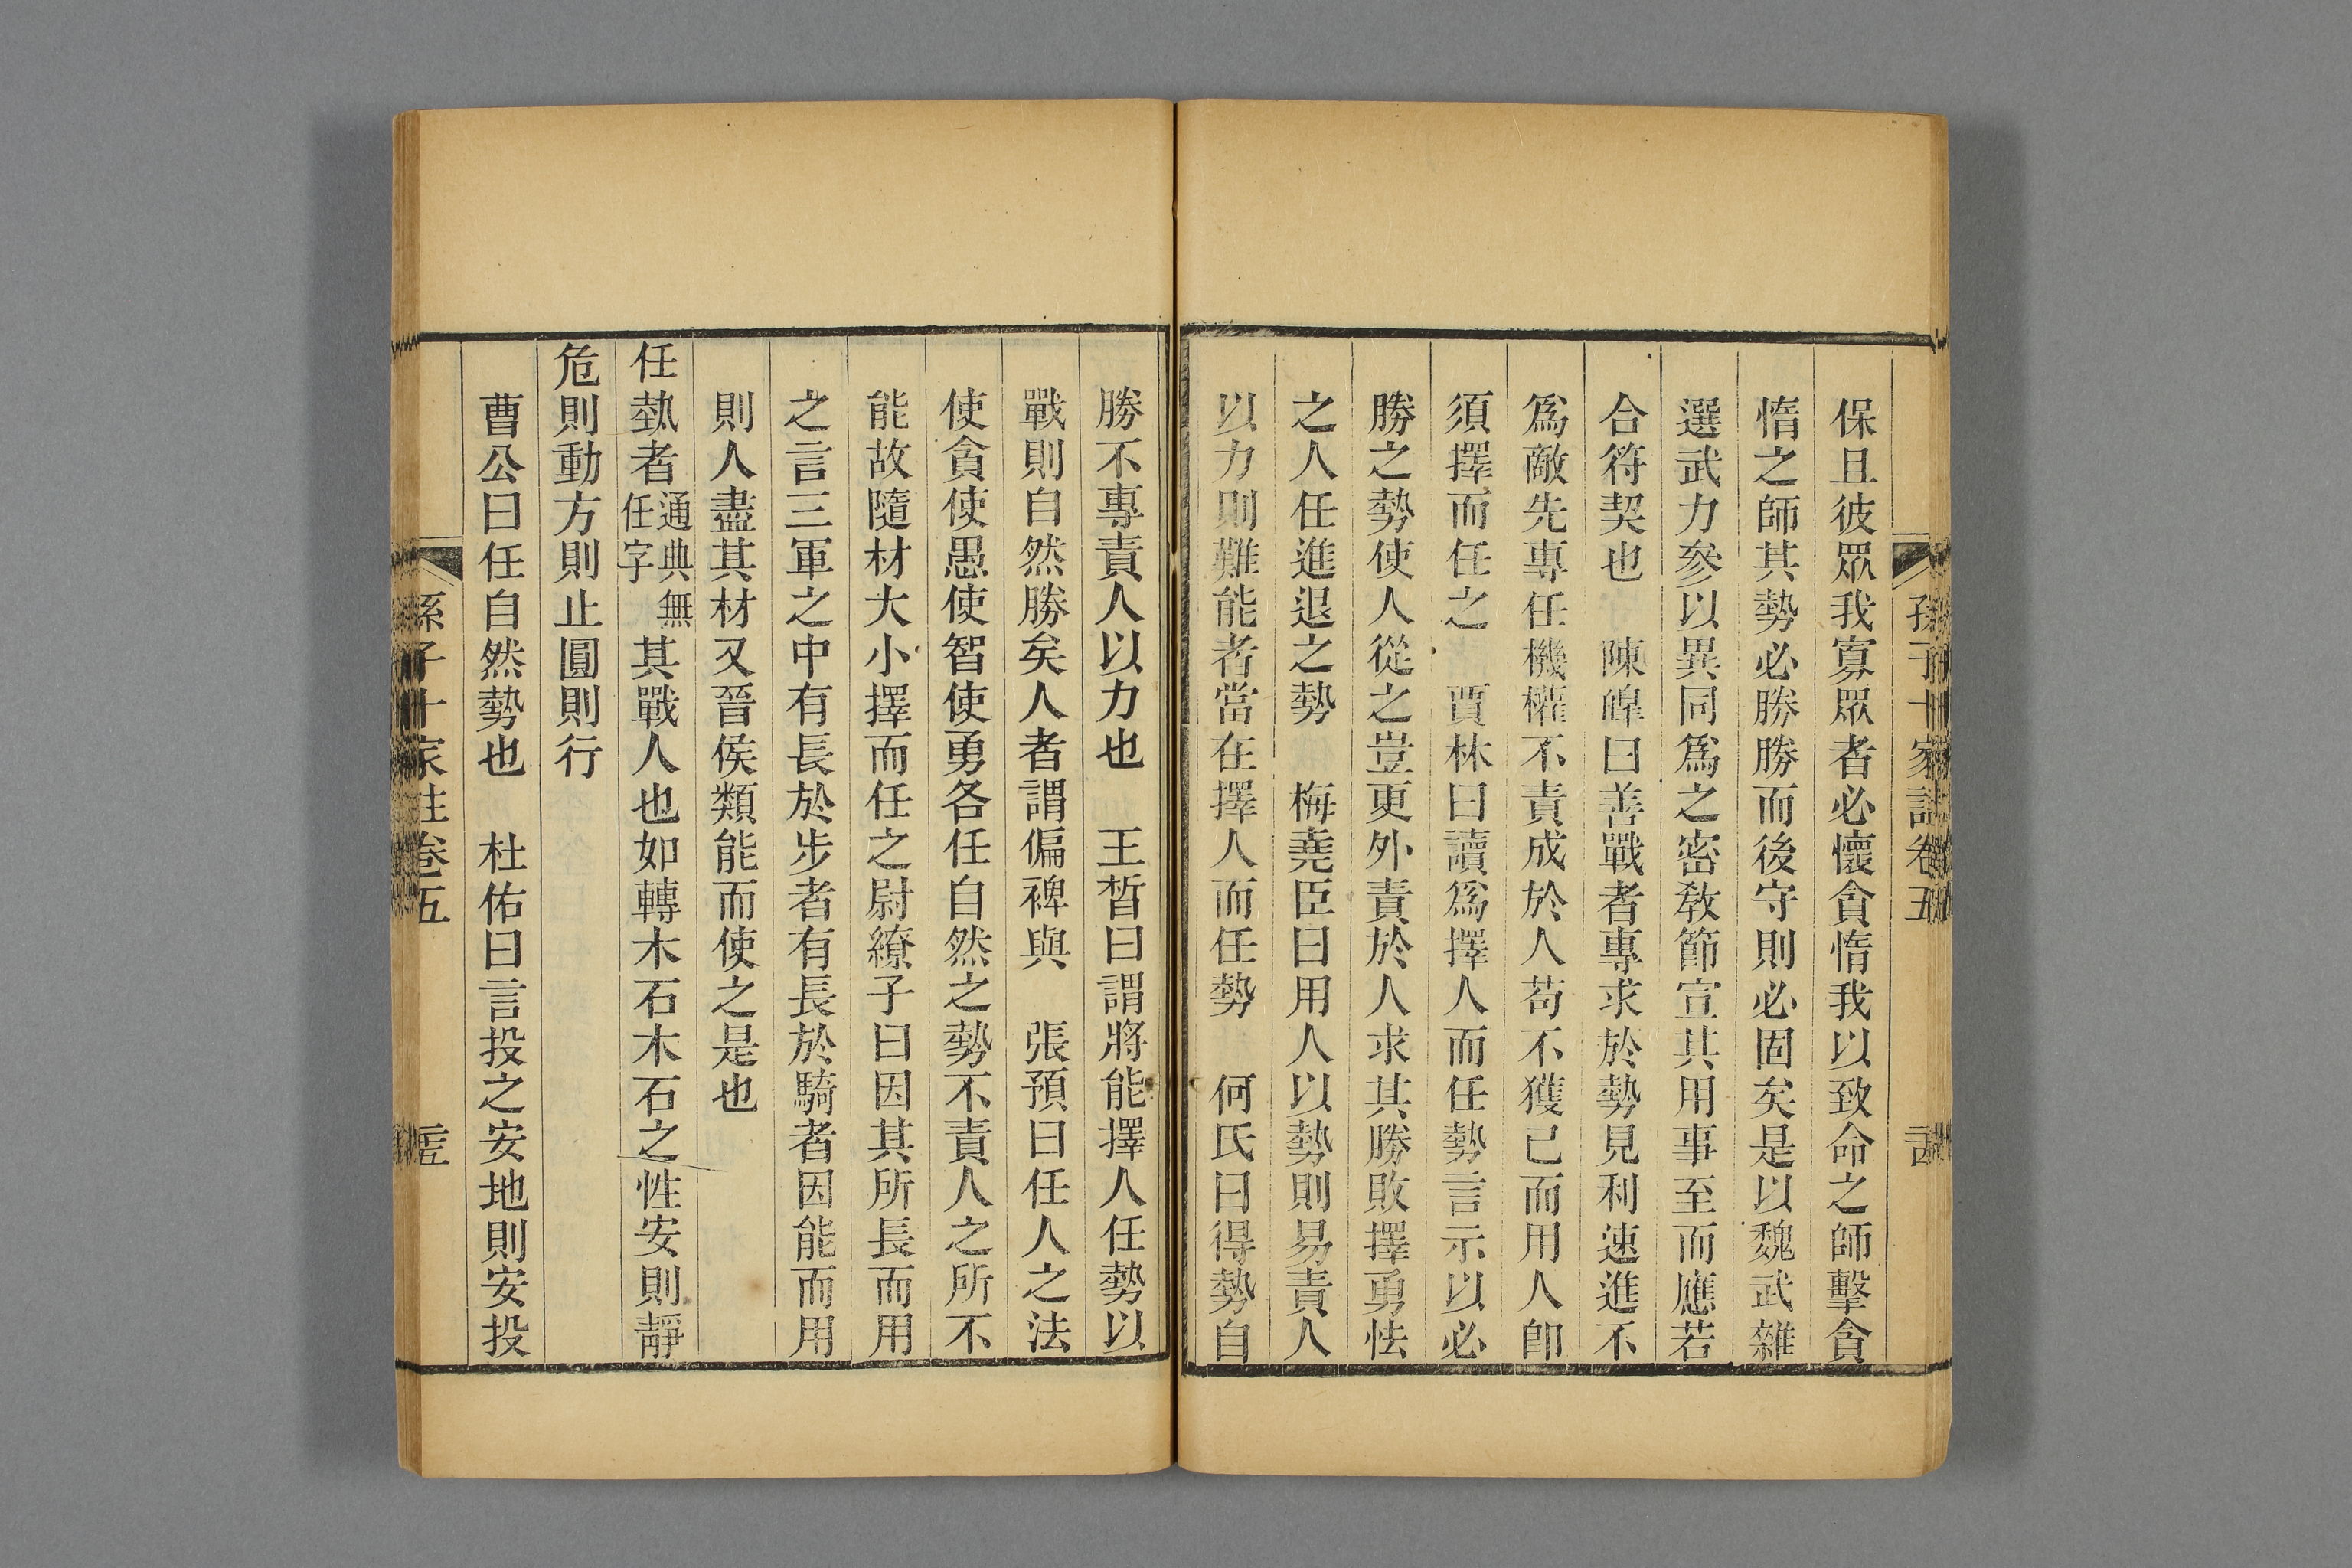 保且彼眾我寡眾者必懷貪惰我以致命之師擊貪
惰之師其勢必勝勝而後守則必固矣是以魏武雜
選武力參以異同爲之密敎節宣其用事至而應若
合符契也　陳皥曰善戰者專求於勢見利速進不
爲敵先專任機權不責成於人苟不獲已而用人卽
須擇而任之　賈林曰讀爲擇人而任勢言示以必
勝之勢使人從之豈更外責於人求其勝敗擇勇怯
之人任進退之勢　梅堯臣曰用人以勢則易責人
以力則難能者當在擇人而任勢　何氏曰得勢自
勝不專責人以力也　王晳曰謂將能擇人任勢以
戰則自然勝矣人者謂偏裨與　張預曰任人之法
使貪使愚使智使勇各任自然之勢不責人之所不
能故隨材大小擇而任之尉繚子曰因其所長而用
之言三軍之中有長於步者有長於騎者因能而用
則人盡其材又晉侯類能而使之是也
任埶者通典無任字其戰人也如轉木石木石之性安則靜
危則動方則止圓則行
曹公曰任自然勢也　杜佑曰言投之安地則安投
孫子十家註卷五